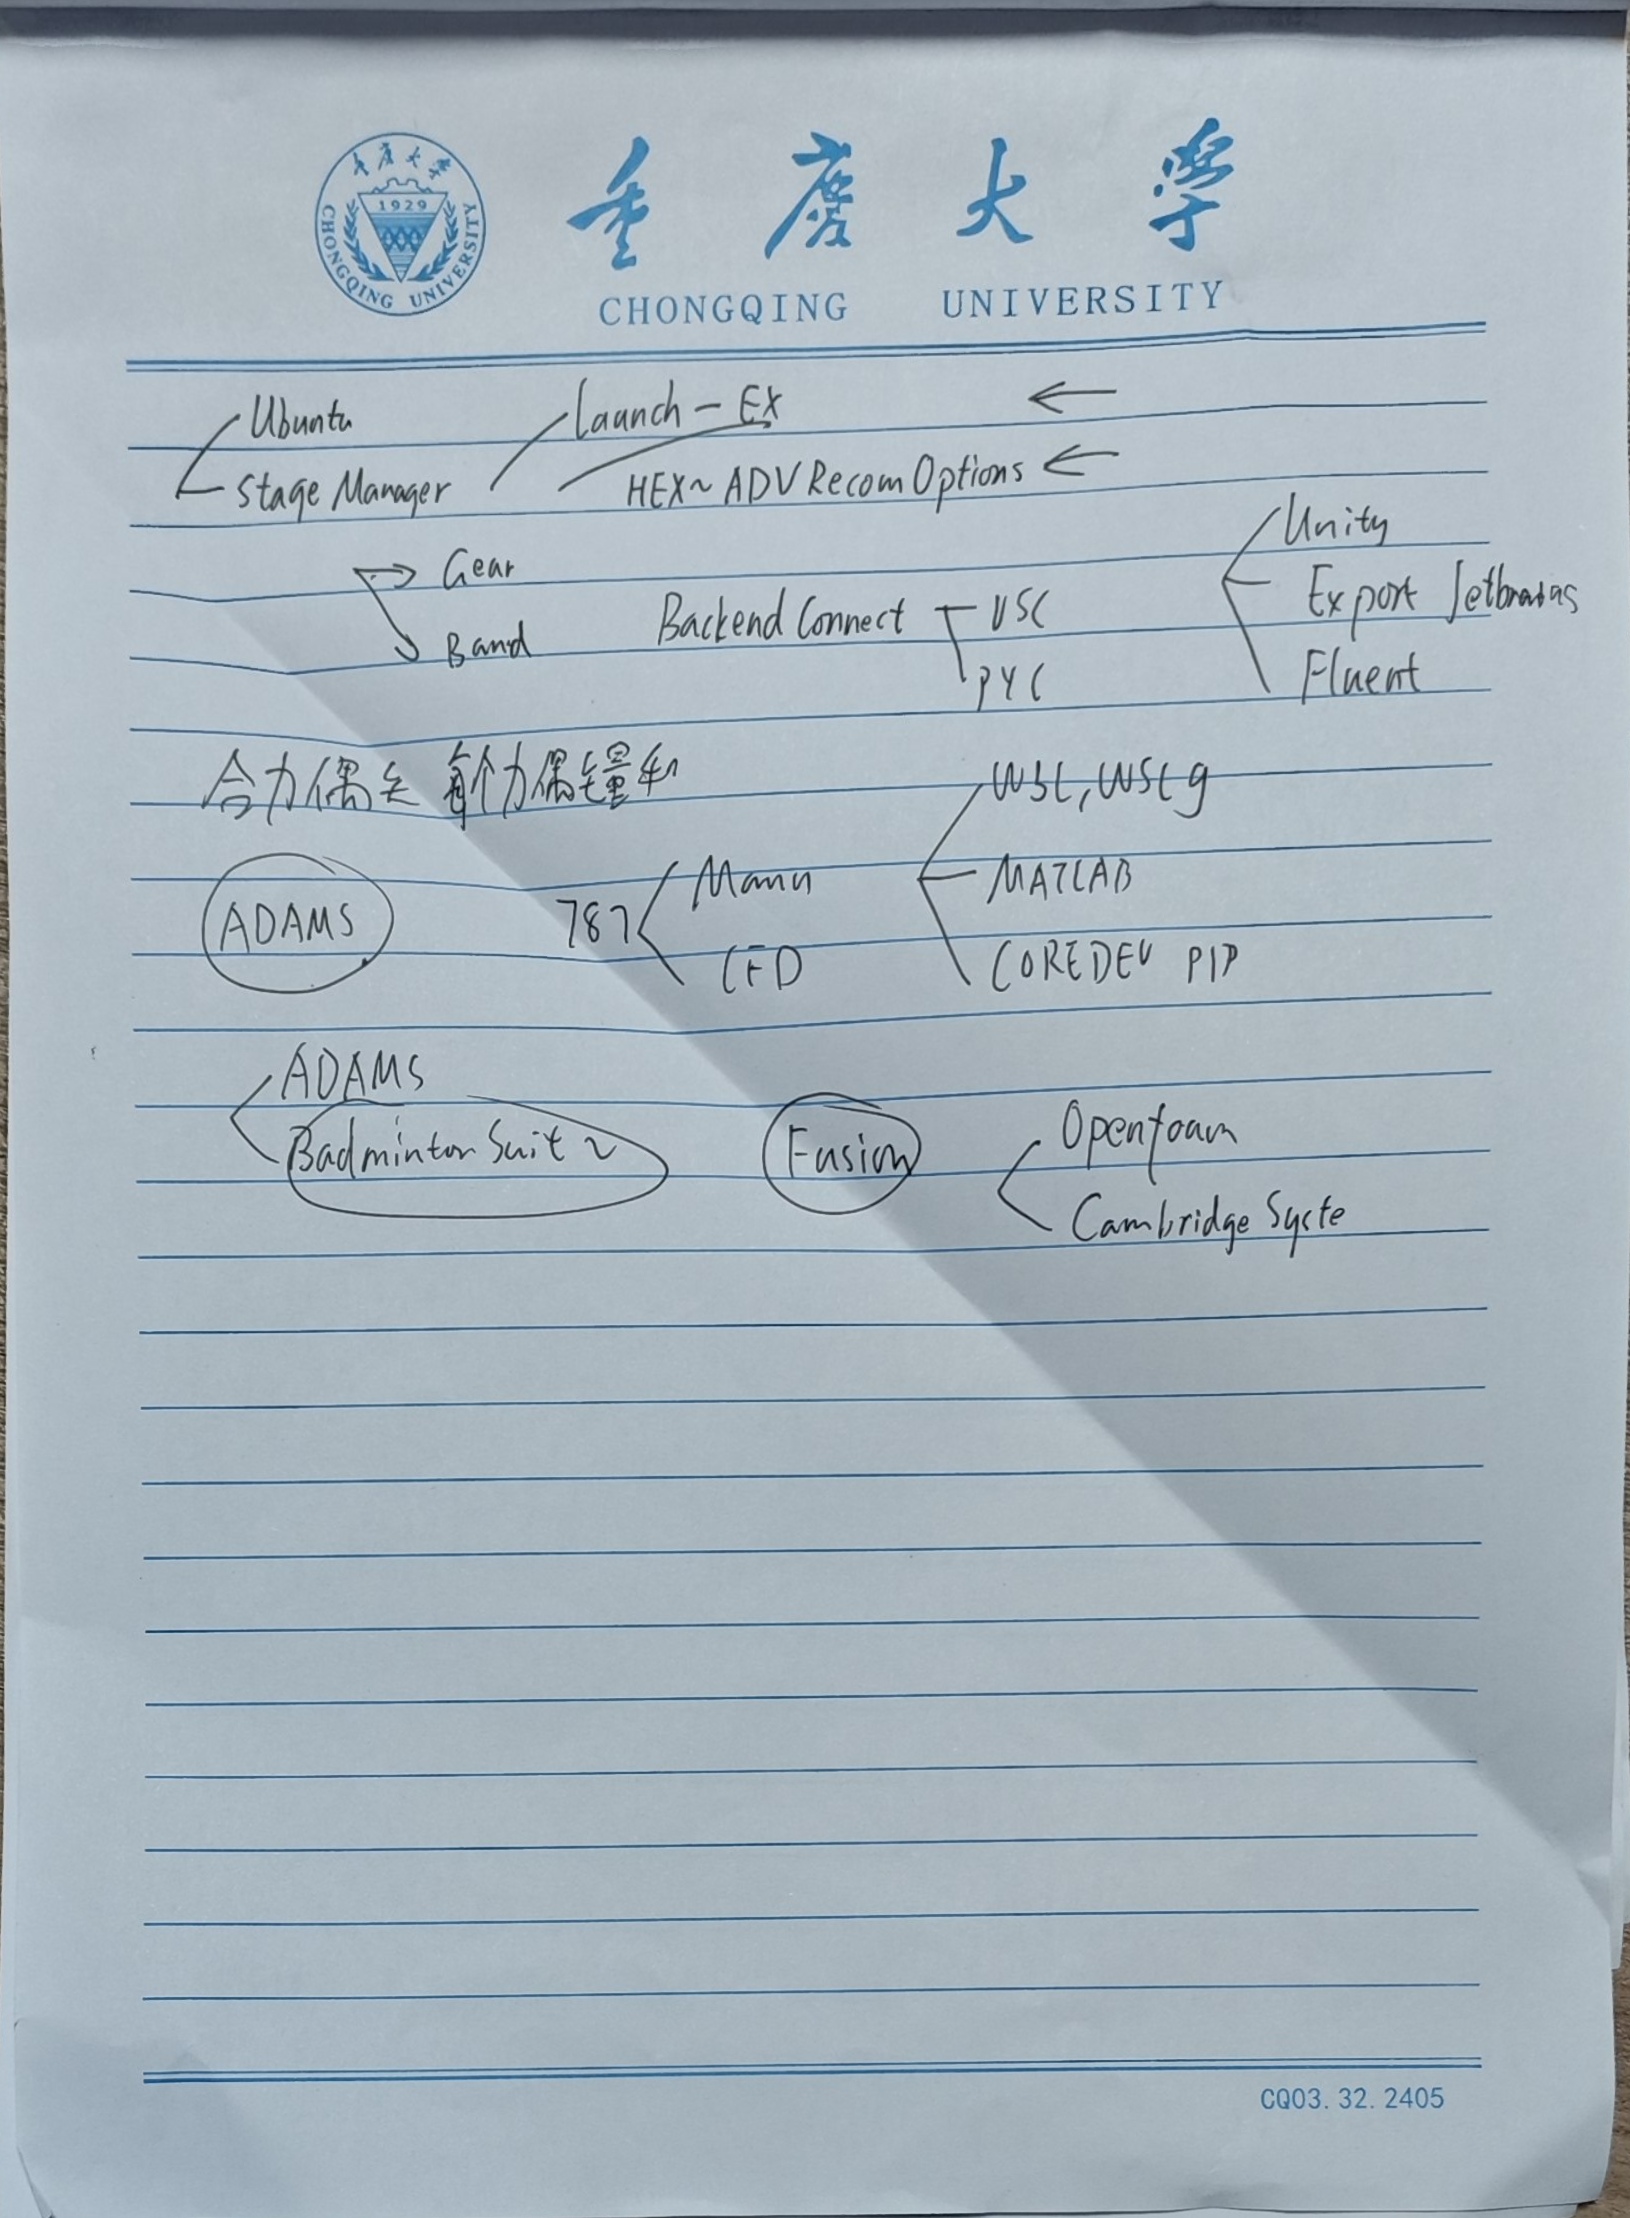 重庆大学
1929
CHONGQING UNIVERSITY
重庆大学
CHONGQING UNIVERSITY
Ubuntu
Stage Manager
Launch - EX
←
HEX~ADV Recom Options ←
Gear
Band
Backend Connect
VSC
PYC
Unity
Export Jetbrains
Fluent
合力偶矢 各个力偶矢量和
WSL, WSLg
MATLAB
COREDEV PIP
ADAMS
787
CFD
ADAMS
Badminton Suit ~
Fusion
Openfoam
Cambridge Syste
CQ03.32.2405